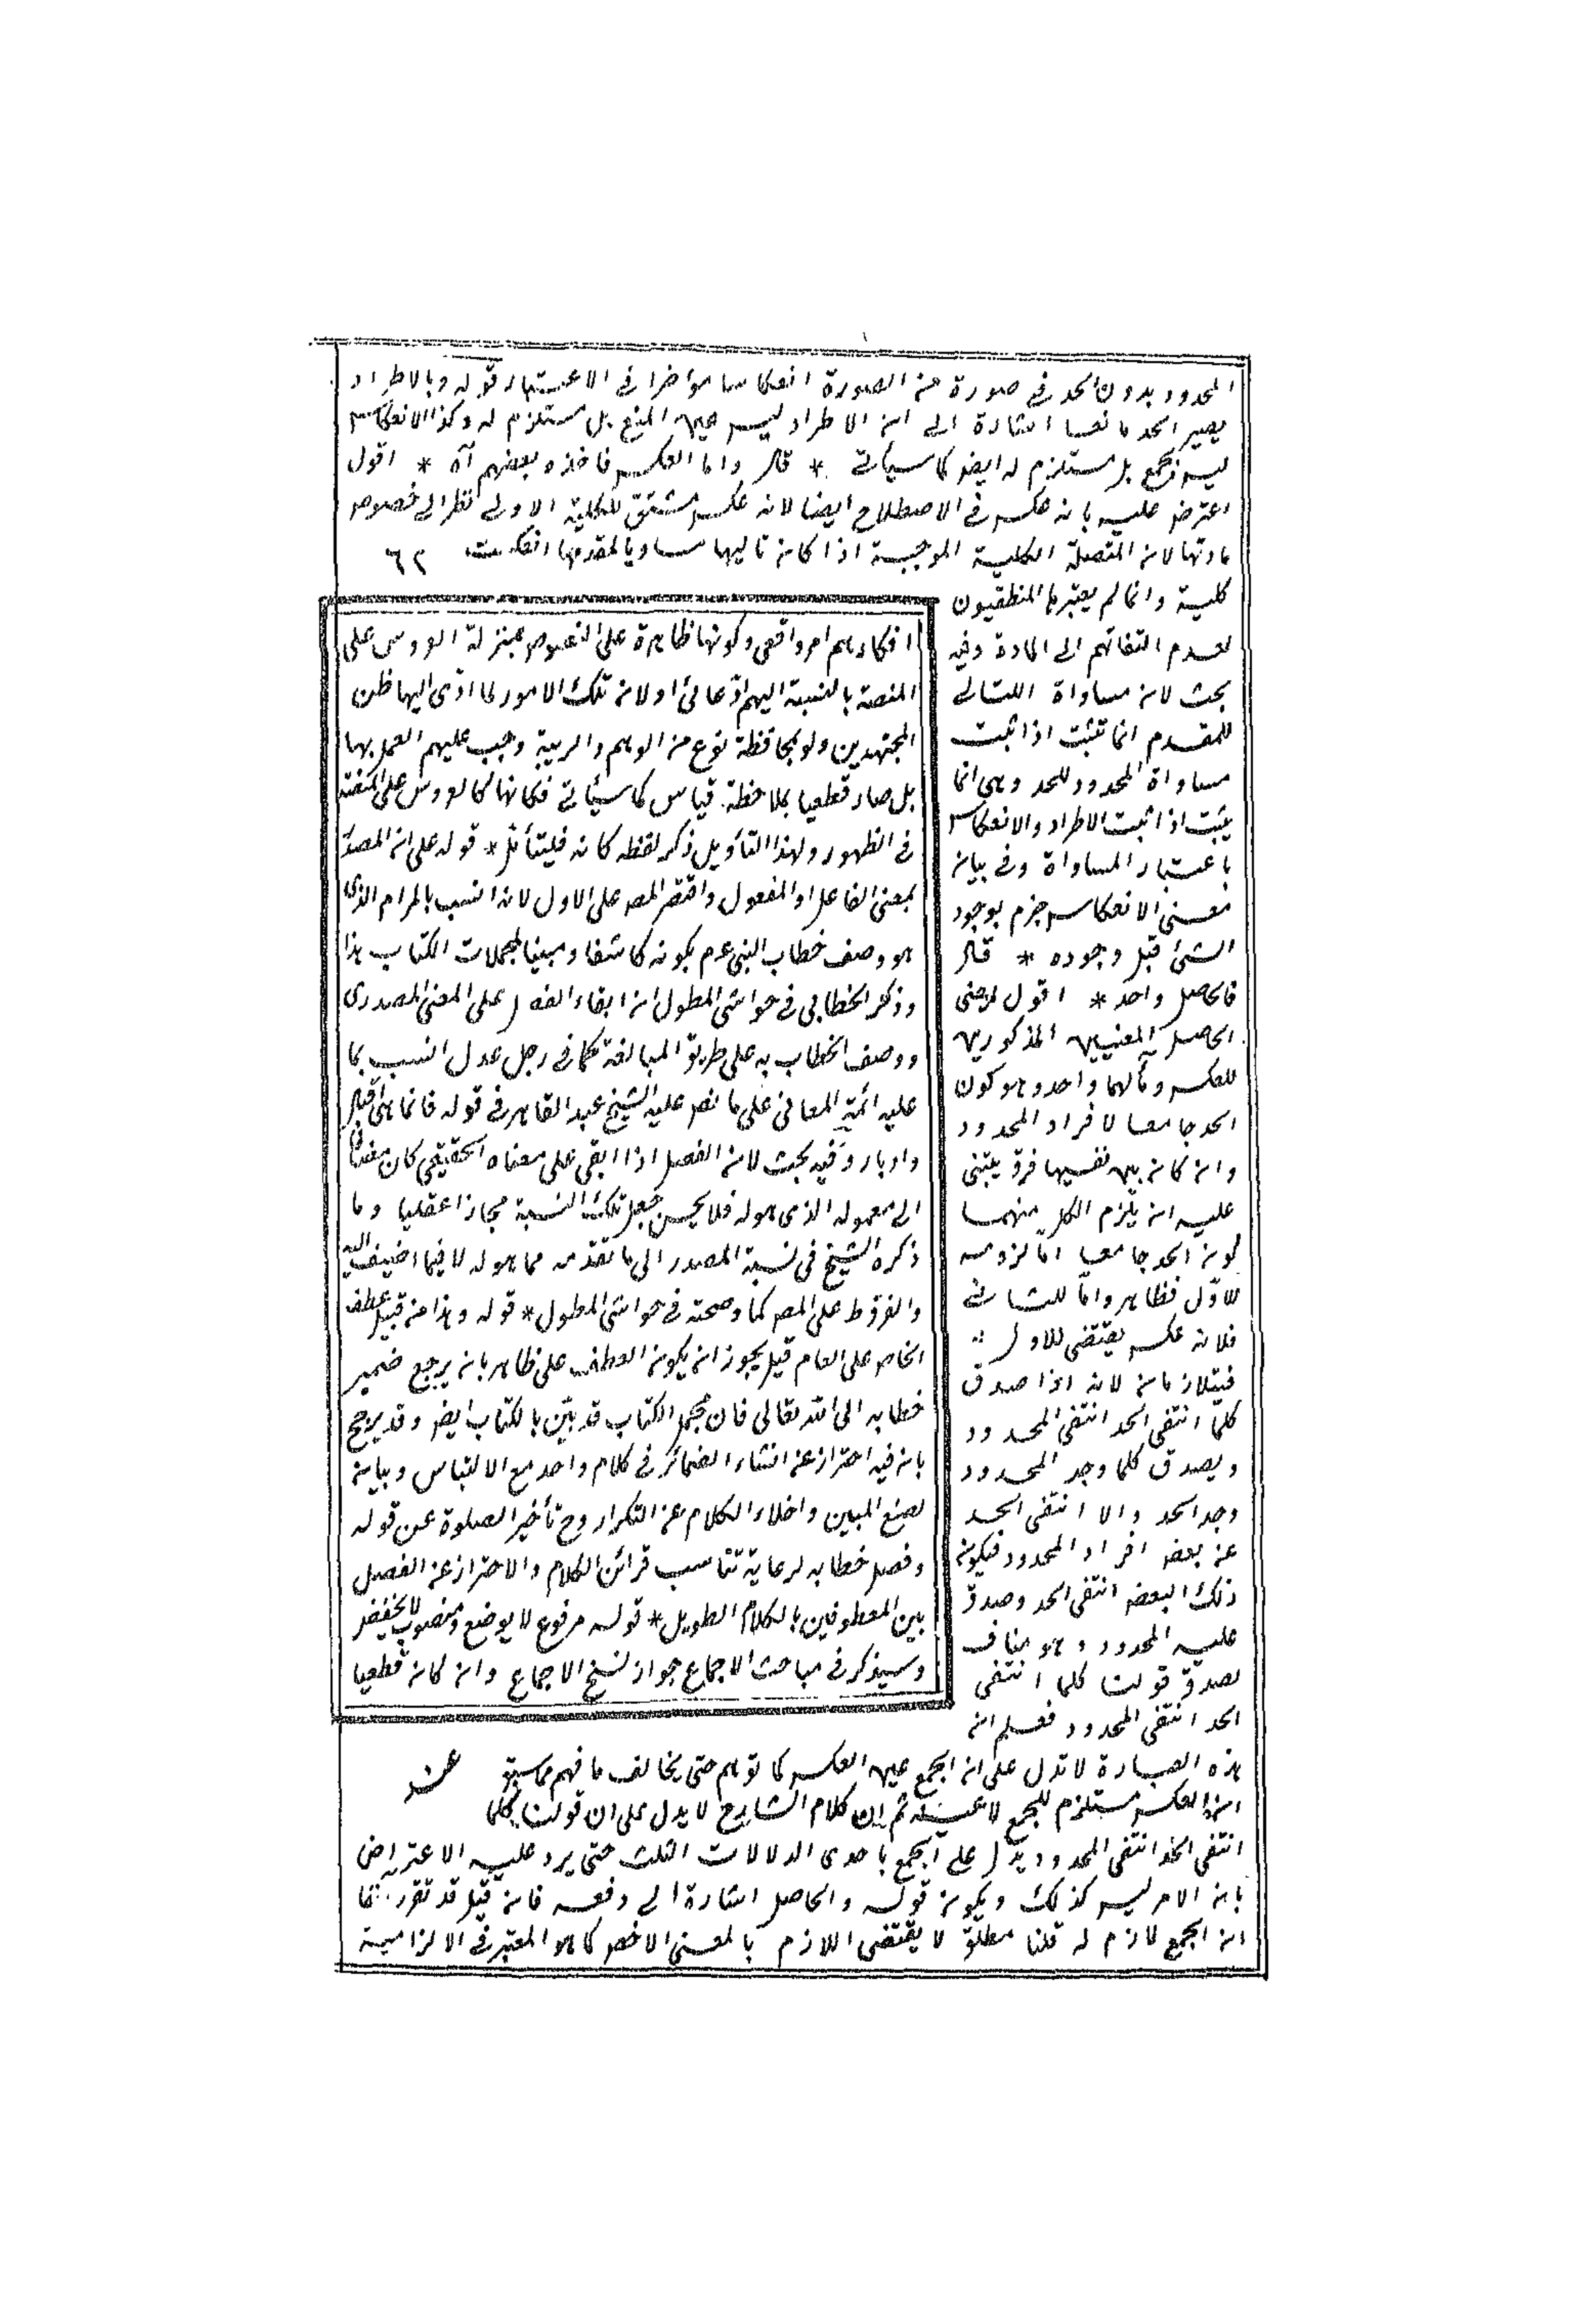 المحدود بدون الحد في صورة من الصورة انعكاسا مؤاخرا في الاعتبار قوله وبالاطراد
يصير الحد مانعا اشارة الى ان الاطراد ليس عين المنع بل مستلزم له وكذا الانعكاس
ليس بجمع بل مستلزم له ايضا كما سيأتي * قال واما العكس فاخذه بعضهم آه * اقول
اعترض عليه بانه عكس في الاصطلاح ايضا لانه عكس مشتق للكلية الاولى نظرا الى خصوص
مادتها لان المتصلة الكلية الموجبة اذا كان تاليها مساويا لمقدمها انعكست
٦٢
كلية وانما لم يعتبرها المنطقيون
لعدم التفاتهم الى المادة وفيه
بحث لان مساواة التالي
للمقدم انما تثبت اذا ثبت
مساواة المحدود للحد وهى انما
يثبت اذا ثبت الاطراد والانعكاس
باعتبار المساواة وفي بيان
معنى الانعكاس جزم بوجود
الشئ قبل وجوده * قال
فالحاصل واحد * اقول
الحاصل المعنيين المذكورين
للعكس ومآلهما واحد وهو كون
الحد جامعا لافراد المحدود
وان كان بين نفسيهما فرق يبتنى
عليه ان يلزم الكل منهما
كون الحد جامعا اما لزومه
للاول فظاهر واما للثاني
فلانه عكس يقتضى للاول
فيتلازمان لانه اذا صدق
كلما انتفى الحد انتفى المحدود
ويصدق كلما وجد المحدود
وجد الحد والا انتفى الحد
عن بعض افراد المحدود فيكون
ذلك البعض انتفى الحد وصدق
عليه المحدود وهو مناف
لصدق قولنا كلما انتفى
الحد انتفى المحدود فعلم ان
هذه العبارة لا تدل على ان الجمع عين العكس كما توهم حتى يخالف ما فهم مما سبق
ان العكس مستلزم للجمع لا عينه ثم ان كلام الشارح لا يدل على ان قولنا كلما
انتفى الحد انتفى المحدود يدل على الجمع باحدى الدلالات الثلث حتى يرد عليه الاعتراض
بان الامر ليس كذلك ويكون قوله والحاصل اشارة الى دفعه فان قيل قد تقرر آنفا
ان الجمع لازم له قلنا مطلق لا يقتضى اللازم بالمعنى الاخص كما هو المعتبر في الالزامية
افكارهم امر واقعى وكونها ظاهرة على النصوص بمنزلة العروس على
المنصة بالنسبة اليهم ادعائى او لان تلك الامور لما ادى اليها ظن
المجتهدين ولو بمحافظة نوع من الوهم والريبة وجب عليهم العمل بها
بل صار قطعيا بملاحظة قياس كما سيأتي فكانها كالعروس على المنصة
في الظهور ولهذا التأويل ذكر لفظه كانه فليتأمل * قوله على ان المصدر
بمعنى الفاعل او المفعول واقتصر المص على الاول لانه انسب بالمرام الذى
هو وصف خطاب النبى عم بكونه كاشفا ومبينا لمجملات الكتاب هذا
وذكر الخطابى في حواشى المطول ان ابقاء الفصل على المعنى المصدرى
ووصف الخطاب به على طريق المبالغة كما في رجل عدل انسب بما
عليه ائمة المعانى على ما نص عليه الشيخ عبد القاهر في قوله فانما هى اقبال
وادبار وفيه بحث لان الفصل اذا ابقى على معناه الحقيقى كان مضافا
الى معموله الذى هو له فلا يحسن جعل تلك النسبة مجازا عقليا وما
ذكره الشيخ في نسبة المصدر الى ما تقدمه مما هو له لا فيما اضيف اليه
والفرق ط على المص كما وضحته في حواشى المطول * قوله وهذا من قبيل عطف
الخاص على العام قيل يجوز ان يكون العطف على ظاهره بان يرجع ضمير
خطابه الى الله تعالى فان مجمل الكتاب قد بين بالكتاب ايضا وقد يرجح
بان فيه احترازا عن انتشار الضمائر في كلام واحد مع الالتباس وبيان
لصنع المبين واخلاء الكلام عن التكرار وح تأخير الصلوة عن قوله
وفصل خطابه لرعاية تناسب قرائن الكلام والاحتراز عن الفصل
بين المعطوفين بالكلام الطويل * قوله مرفوع لا يوضع ومنصوب لا يخفض
وسيذكر في مباحث الاجماع جواز نسخ الاجماع وان كان قطعيا